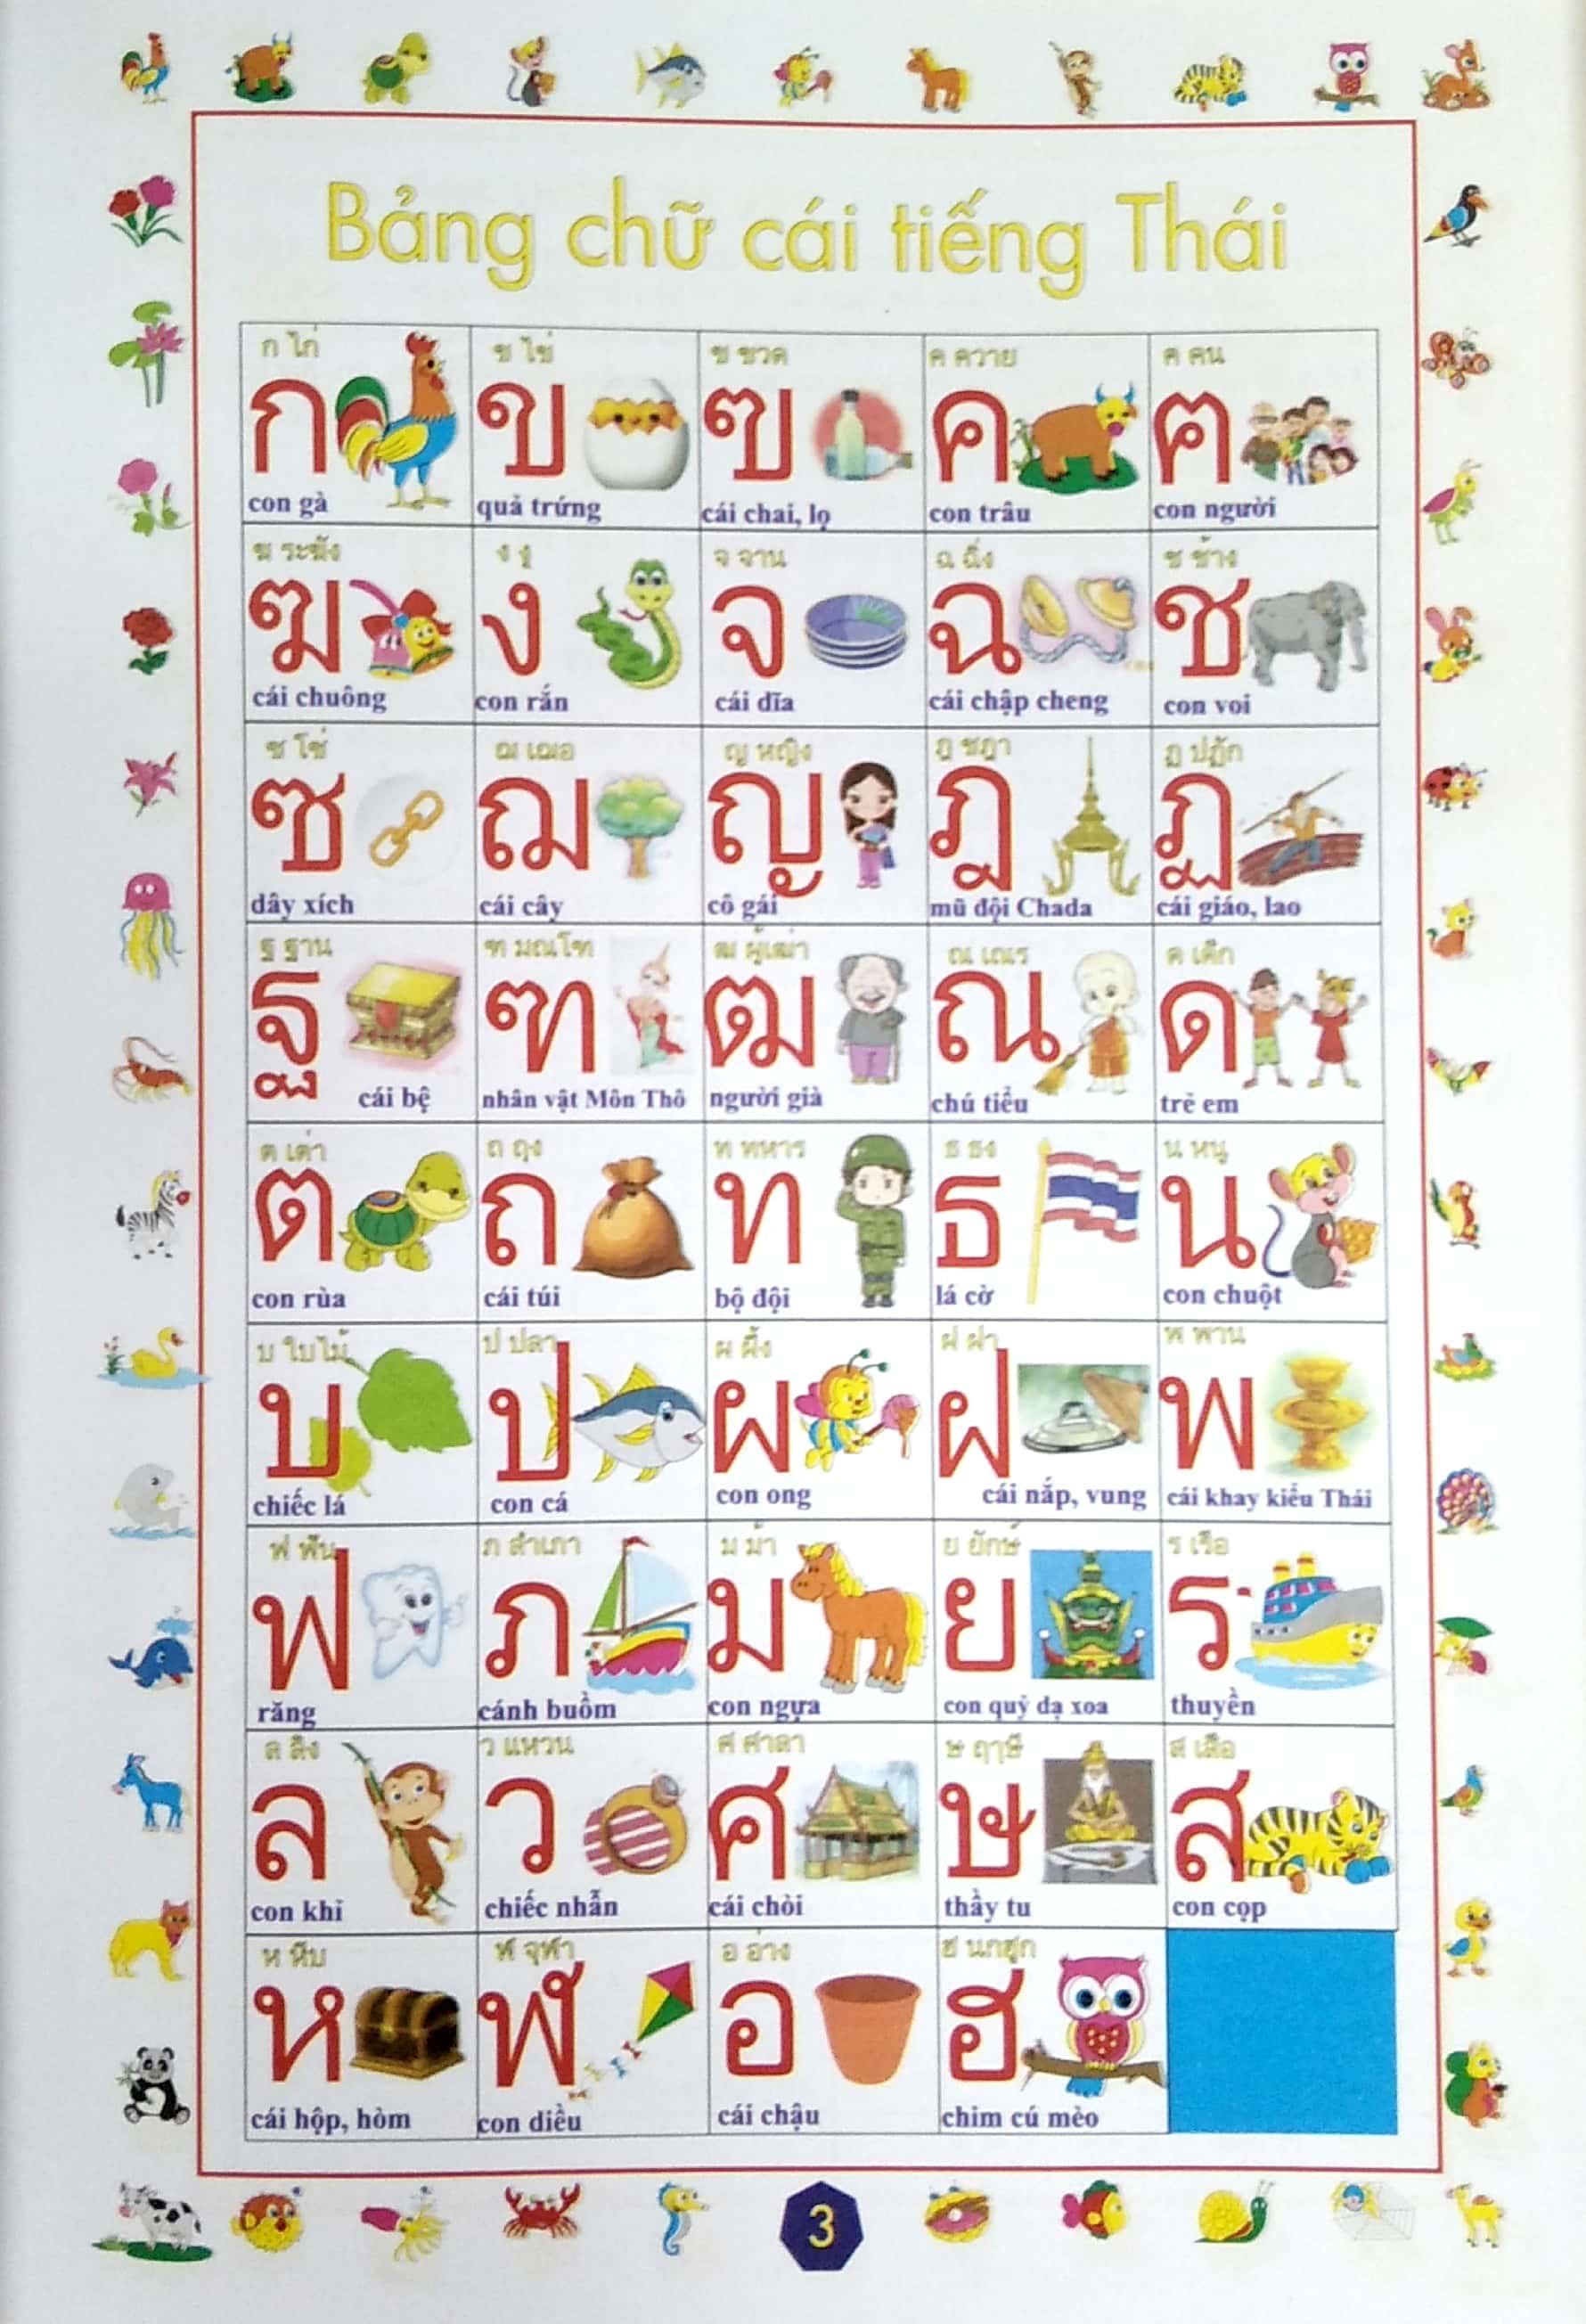 Bảng chữ cái tiếng Thái
ก ไก่
ก
con gà
ข ไข่
ข
quả trứng
ฃ ขวด
ฃ
cái chai, lọ
ค ควาย
ค
con trâu
ฅ คน
ฅ
con người
ฆ ระฆัง
ฆ
cái chuông
ง งู
ง
con rắn
จ จาน
จ
cái dĩa
ฉ ฉิ่ง
ฉ
cái chập cheng
ช ช้าง
ช
con voi
ซ โซ่
ซ
dây xích
ฌ เฌอ
ฌ
cái cây
ญ หญิง
ญ
cô gái
ฎ ชฎา
ฎ
mũ đội Chada
ฏ ปฏัก
ฏ
cái giáo, lao
ฐ ฐาน
ฐ
cái bệ
ฑ มณโฑ
ฑ
nhân vật Môn Thô
ฒ ผู้เฒ่า
ฒ
người già
ณ เณร
ณ
chú tiểu
ด เด็ก
ด
trẻ em
ต เต่า
ต
con rùa
ถ ถุง
ถ
cái túi
ท ทหาร
ท
bộ đội
ธ ธง
ธ
lá cờ
น หนู
น
con chuột
บ ใบไม้
บ
chiếc lá
ป ปลา
ป
con cá
ผ ผึ้ง
ผ
con ong
ฝ ฝา
ฝ
cái nắp, vung
พ พาน
พ
cái khay kiểu Thái
ฟ ฟัน
ฟ
răng
ภ สำเภา
ภ
cánh buồm
ม ม้า
ม
con ngựa
ย ยักษ์
ย
con quỷ dạ xoa
ร เรือ
ร
thuyền
ล ลิง
ล
con khỉ
ว แหวน
ว
chiếc nhẫn
ศ ศาลา
ศ
cái chòi
ษ ฤๅษี
ษ
thầy tu
ส เสือ
ส
con cọp
ห หีบ
ห
cái hộp, hòm
ฬ จุฬา
ฬ
con diều
อ อ่าง
อ
cái chậu
ฮ นกฮูก
ฮ
chim cú mèo
3